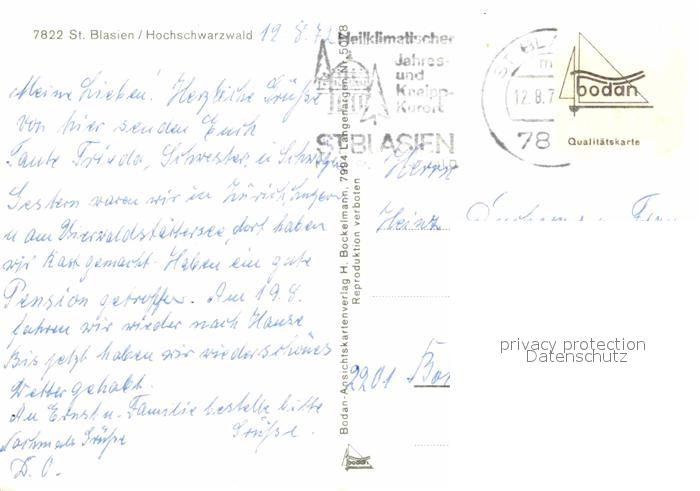 7822 St. Blasien / Hochschwarzwald 12.8.72
Meine Lieben! Herzliche Grüße
von hier senden Euch
Tante Frieda, Schwester u. Schwager
Gestern waren wir in Zürich, Luzern
u. am Vierwaldstättersee, dort haben
wir Rast gemacht. Haben ein gute
Pension getroffen. Am 19.8.
fahren wir wieder nach Hause
Bis jetzt haben wir wiederschönes
Wetter gehabt.
An Ernst u. Familie bestelle bitte
Nochmals Grüße Grüße.
D. O.
Heilklimatischer
Jahres-
und
Kneipp-
Kurort
ST. BLASIEN
ST. BLA
12.8.7
78
bodan
Qualitätskarte
Bodan-Ansichtskartenverlag H. Bockelmann, 7994 Langenargen Nr. 5078
Reproduktion verboten
bodan
Herrn
Heinz
2201
privacy protection
Datenschutz